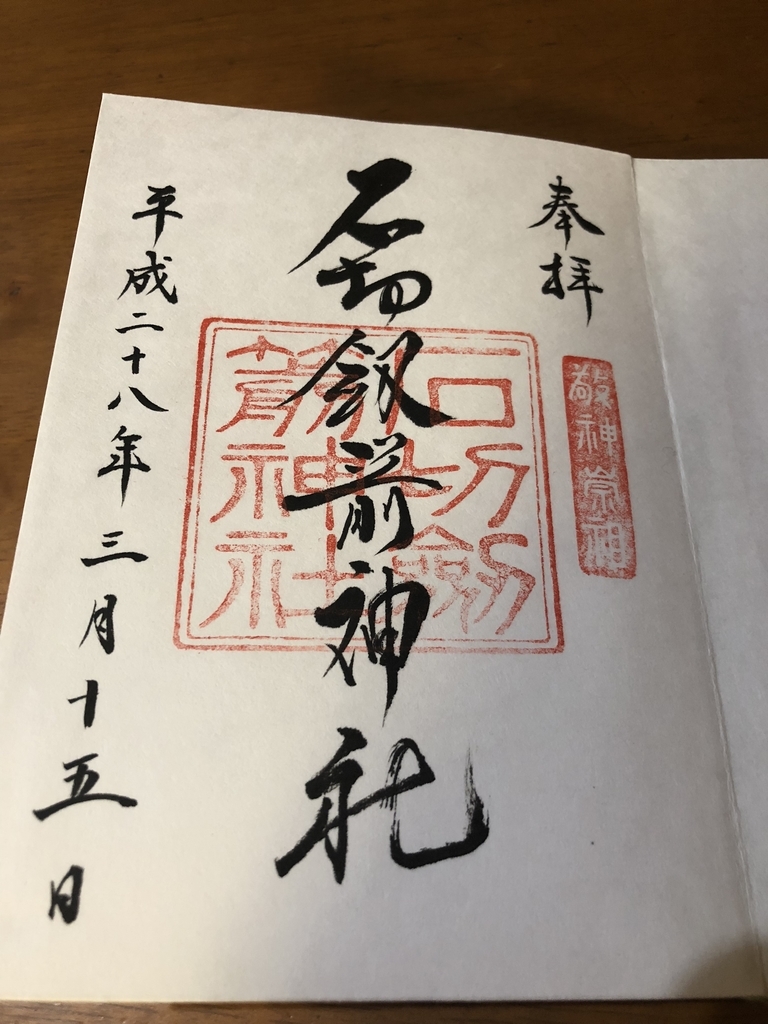 奉拝
敬神崇祖
石切劔箭神社
石切劔
箭神社
平成二十八年三月十五日